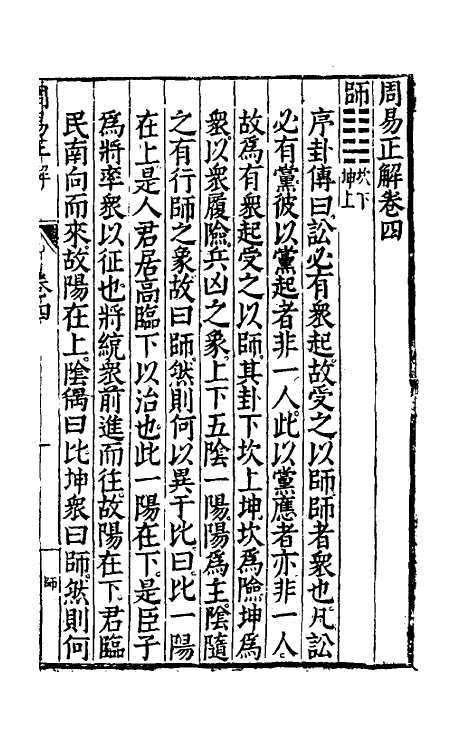 周易正解卷四
師䷆坎下坤上
序卦傳曰訟必有衆起故受之以師師者衆也凡訟
必有黨彼以黨起者非一人此以黨應者亦非一人
故爲有衆起受之以師其卦下坎上坤坎爲險坤爲
衆以衆履險兵凶之象上下五陰一陽陽爲主陰隨
之有行師之象故曰師然則何以異于比曰比一陽
在上是人君居高臨下以治也此一陽在下是臣子
爲將率衆以征也將統衆前進而往故陽在下君臨
民南向而來故陽在上陰偶曰比坤衆曰師然則何
周易正解
卷四
一
師